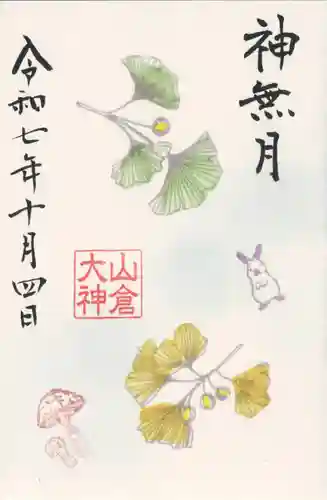 神無月
山倉
大神
令和七年十月四日